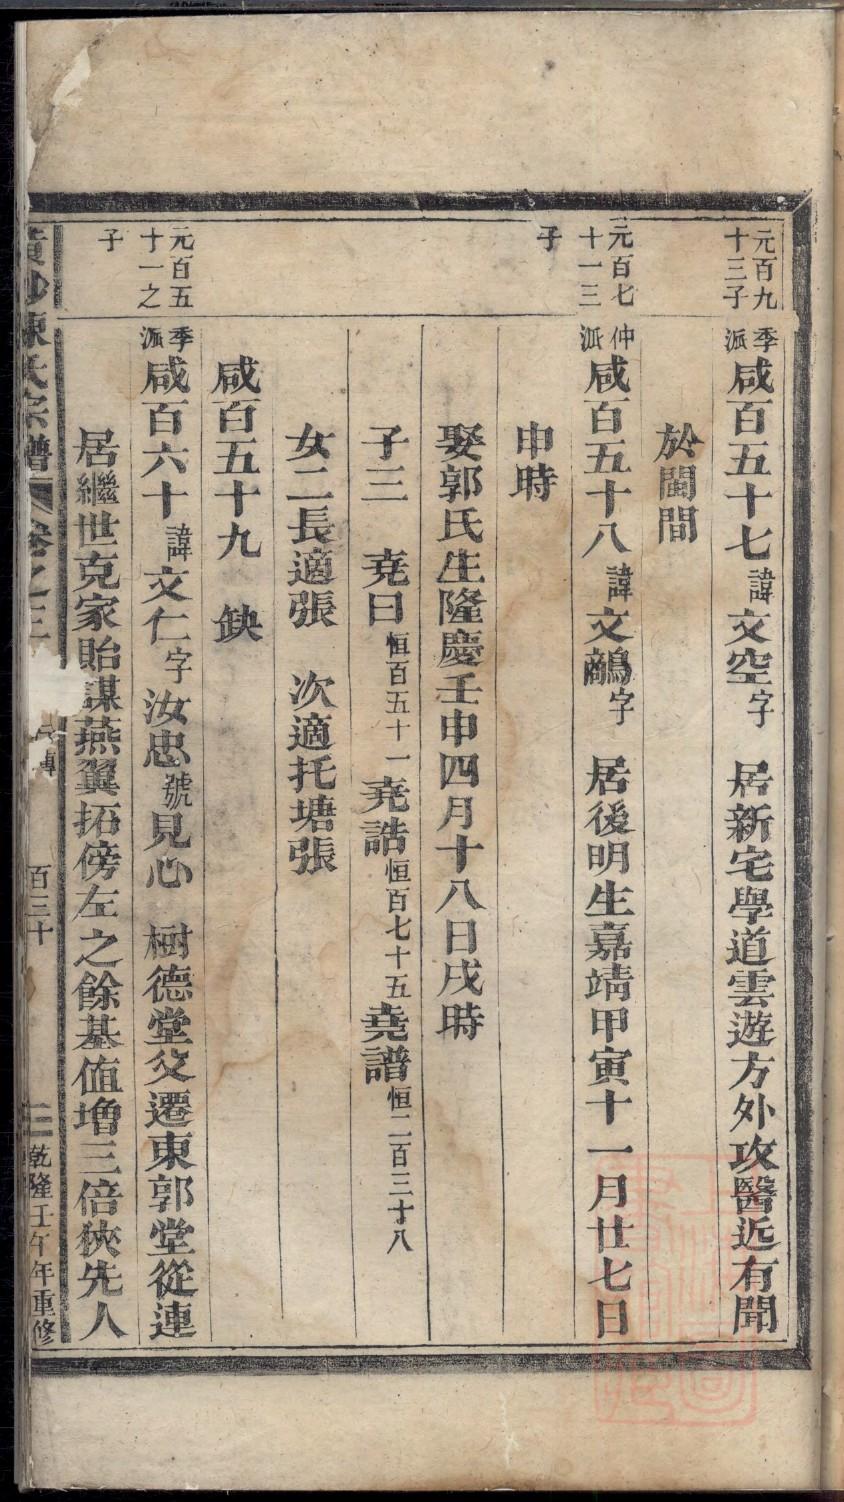 元百九
十三子
季派咸百五十七諱文空字　居新宅學道雲遊方外攻醫近有聞
於閩間
元百七
十一三
子
仲派咸百五十八諱文鷸字　居後明生嘉靖甲寅十一月廿七日
申時
娶郭氏生隆慶壬申四月十八日戌時
子三　堯曰恒百五十一堯誥恒百七十五堯譜恒二百三十八
女二長適張　次適托塘張
咸百五十九　缺
元百五
十一之
子
季派咸百六十諱文仁字汝忠號見心　樹德堂父遷東郭堂從連
居繼世克家貽謀燕翼拓傍左之餘基值增三倍狹先人
陳氏宗譜　卷之三　百三十　乾隆壬午年重修